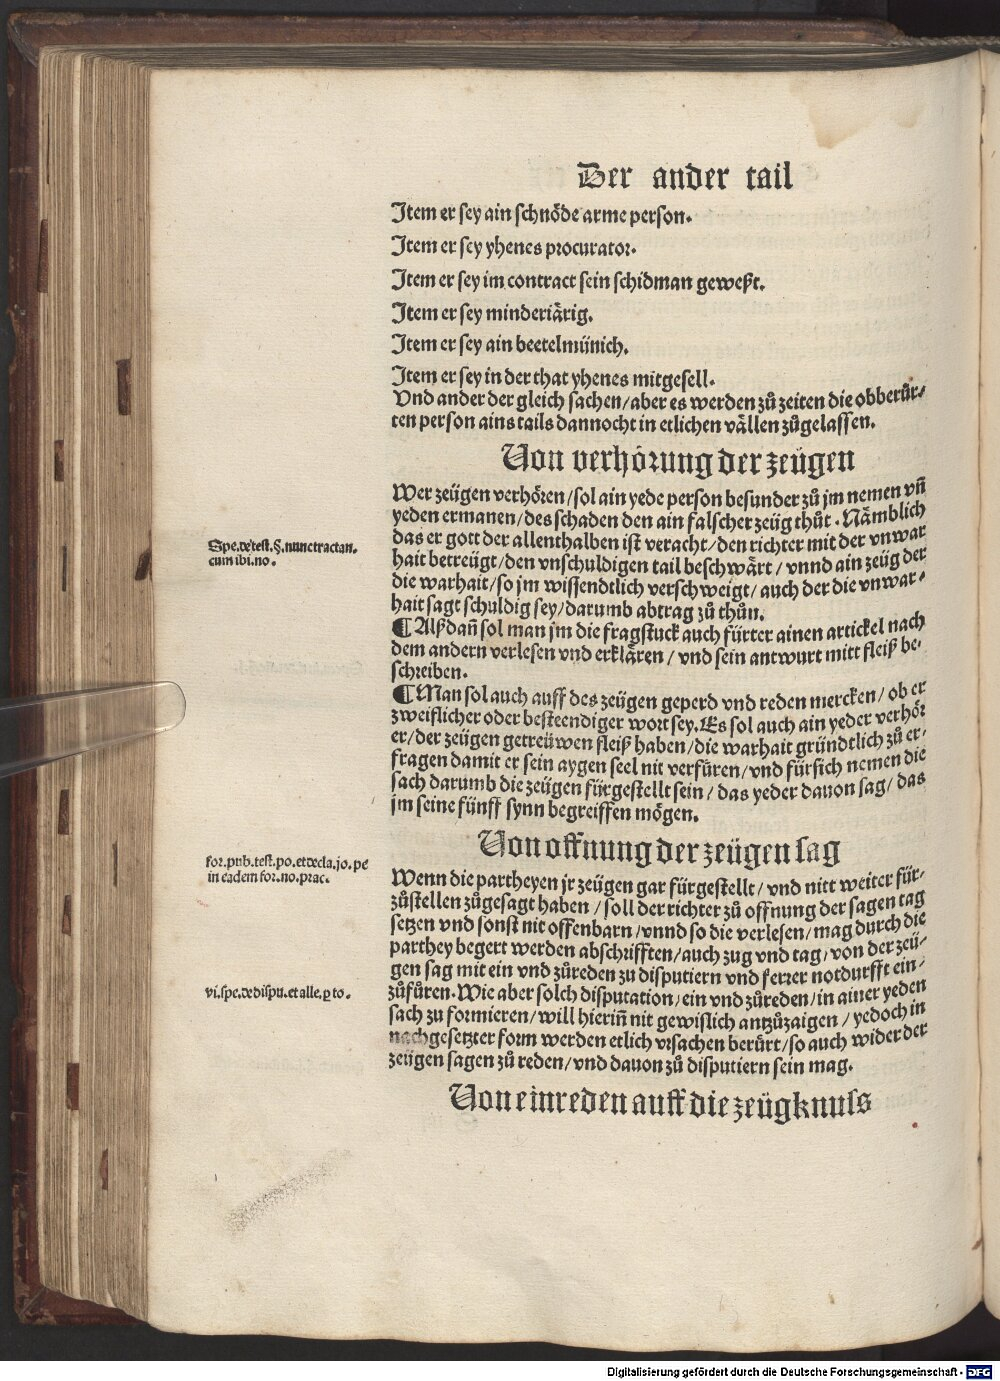 Der ander tail
Item er sey ain schnöde arme person.
Item er sey yhenes procurator.
Item er sey im contract sein schidman geweßt.
Item er sey minderiärig.
Item er sey ain beetelmünich.
Item er sey in der that yhenes mitgesell.
Vnd ander der gleich sachen/aber es werden zů zeiten die obberůr-
ten person ains tails dannocht in etlichen vällen zůgelassen.
Von verhörung der zeügen
Wer zeügen verhören/sol ain yede person besunder zů jm nemen vñ
yeden ermanen/des schaden den ain falscher zeüg thůt. Nämblich
das er gott der allenthalben ist veracht/den richter mit der vnwar
hait betreügt/den vnschuldigen tail beschwärt/vnnd ain zeüg der
die warhait/so jm wissendtlich verschweigt/auch der die vnwar-
hait sagt schuldig sey/darumb abtrag zů thůn.
Spe.de test.§.nunc tractan.
cum ibi.no.
¶ Alßdañ sol man jm die fragstuck auch fürter ainen artickel nach
dem andern verlesen vnd erklären/vnd sein antwurt mitt fleiß be-
schreiben.
¶ Man sol auch auff des zeügen geperd vnd reden mercken/ob er
zweiflicher oder besteendiger wort sey. Es sol auch ain yeder verhör
er/der zeügen getreüwen fleiß haben/die warhait gründtlich zů er-
fragen damit er sein aygen seel nit verfüren/vnd fürsich nemen die
sach darumb die zeügen fürgestellt sein/das yeder dauon sag/das
jm seine fünff synn begreiffen mögen.
Von offnung der zeügen sag
for.pub.test.po.et decla.jo.pe
in eadem for.no.prac.
Wenn die partheyen jr zeügen gar fürgestellt/vnd nitt weiter für-
zůstellen zůgesagt haben/soll der richter zů offnung der sagen tag
setzen vnd sonst nit offenbarn/vnnd so die verlesen/mag durch die
parthey begert werden abschrifften/auch zug vnd tag/von der zeü-
gen sag mit ein vnd zůreden zu disputiern vnd ferrer notdurfft ein-
zůfůren. Wie aber solch disputation/ein vnd zůreden/in ainer yeden
sach zu formieren/will hieriñ nit gewislich antzůzaigen/yedoch in
nachgesetzter form werden etlich vrsachen berürt/so auch wider der
zeügen sagen zů reden/vnd dauon zů disputiern sein mag.
vi.spe.de dispu.et alle.ꝑ to.
Von einreden auff die zeügknuss
Digitalisierung gefördert durch die Deutsche Forschungsgemeinschaft - DFG